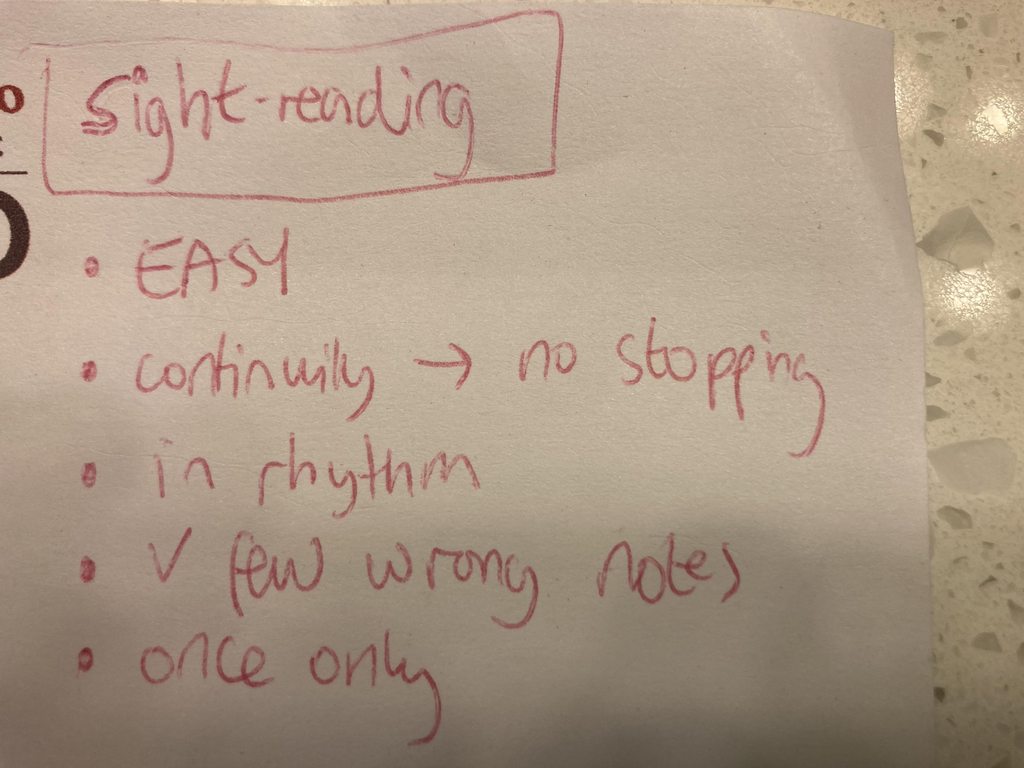 sight-reading
• EASY
• continuity → no stopping
• in rhythm
• V few wrong notes
• once only